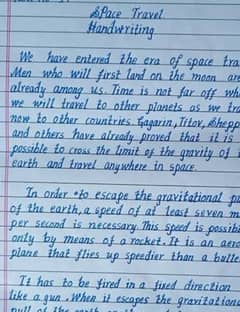 Space Travel
Handwriting
We have entered the era of space tra
Men who will first land on the moon are
already among us. Time is not far off wh
we will travel to other planets as we tra
now to other countries. Gagarin, Titov, Shepp
and others have already proved that it is
possible to cross the limit of the gravity of
earth and travel anywhere in space.
In order to escape the gravitational pu
of the earth, a speed of at least seven m
per second is necessary. This speed is possib
only by means of a rocket. It is an aero
plane that flies up speedier than a bulle
It has to be fired in a fixed direction
like a gun. When it escapes the gravitationa
pull of the earth